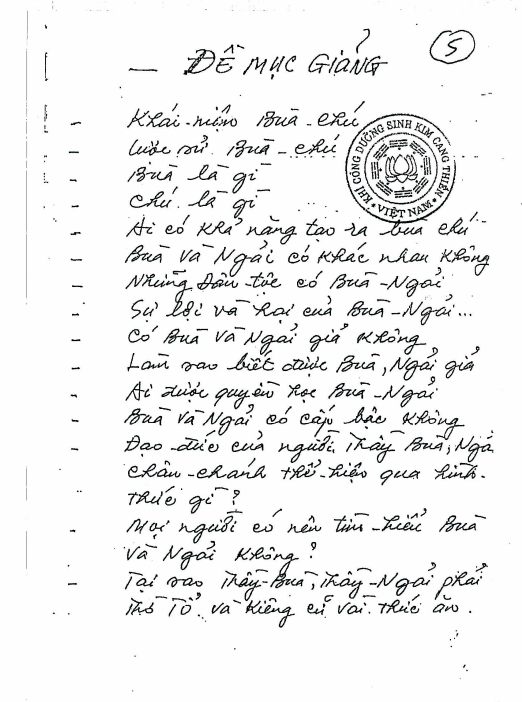 5
— ĐỀ MỤC GIẢNG
- Khái-niệm Buà-chú
- Lược sử Buà-chú
- Buà là gì
- Chú là gì
- Ai có khả năng tạo ra bùa chú
- Buà và Ngải có khác nhau không
- Những Dân-tộc có Buà-Ngải
- Sự lợi và hại của Buà-Ngải...
- Có Buà và Ngải giả không
- Làm sao biết được Buà, Ngải giả
- Ai được quyền học Buà-Ngải
- Buà và Ngải có cấp bậc không
- Đạo-đức của người Thầy Buà, Ngả
chân-chánh thể-hiện qua hình-
thức gì?
- Mọi người có nên tìm-hiểu Buà
và Ngải không?
- Tại sao Thầy-Buà, Thầy-Ngải phải
Thờ Tổ và kiêng cữ vài thức ăn.
KHÍ CÔNG DƯỠNG SINH KIM CANG THIỀN
* VIỆT NAM *